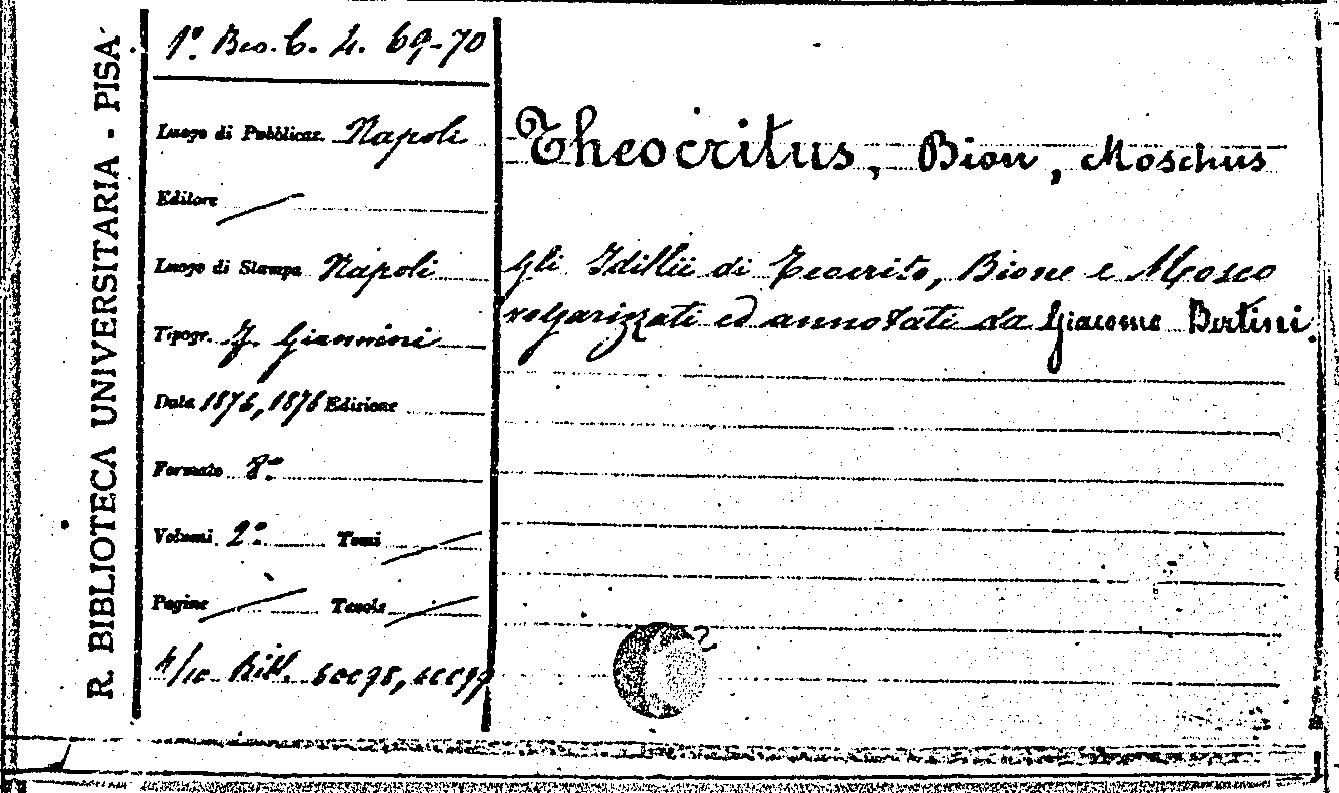 R. BIBLIOTECA UNIVERSITARIA - PISA
Luogo di Pubblicaz. Napoli
Editore
Luogo di Stampa Napoli
Tipogr. Giannini
Data 1876, 1878 Edizione
Formato 8º
Volumi 2º Tomi
Pagine Tavole
Theocritus, Bion, Moschus
Gli Idillii di Teocrito, Bione e Mosco
volgarizzati ed annotati da Giacomo Bertini.